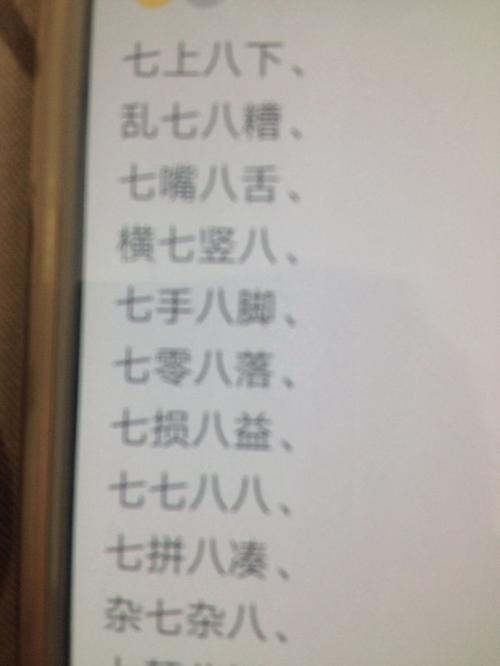 七上八下、
乱七八糟、
七嘴八舌、
横七竖八、
七手八脚、
七零八落、
七损八益、
七七八八、
七拼八凑、
杂七杂八、